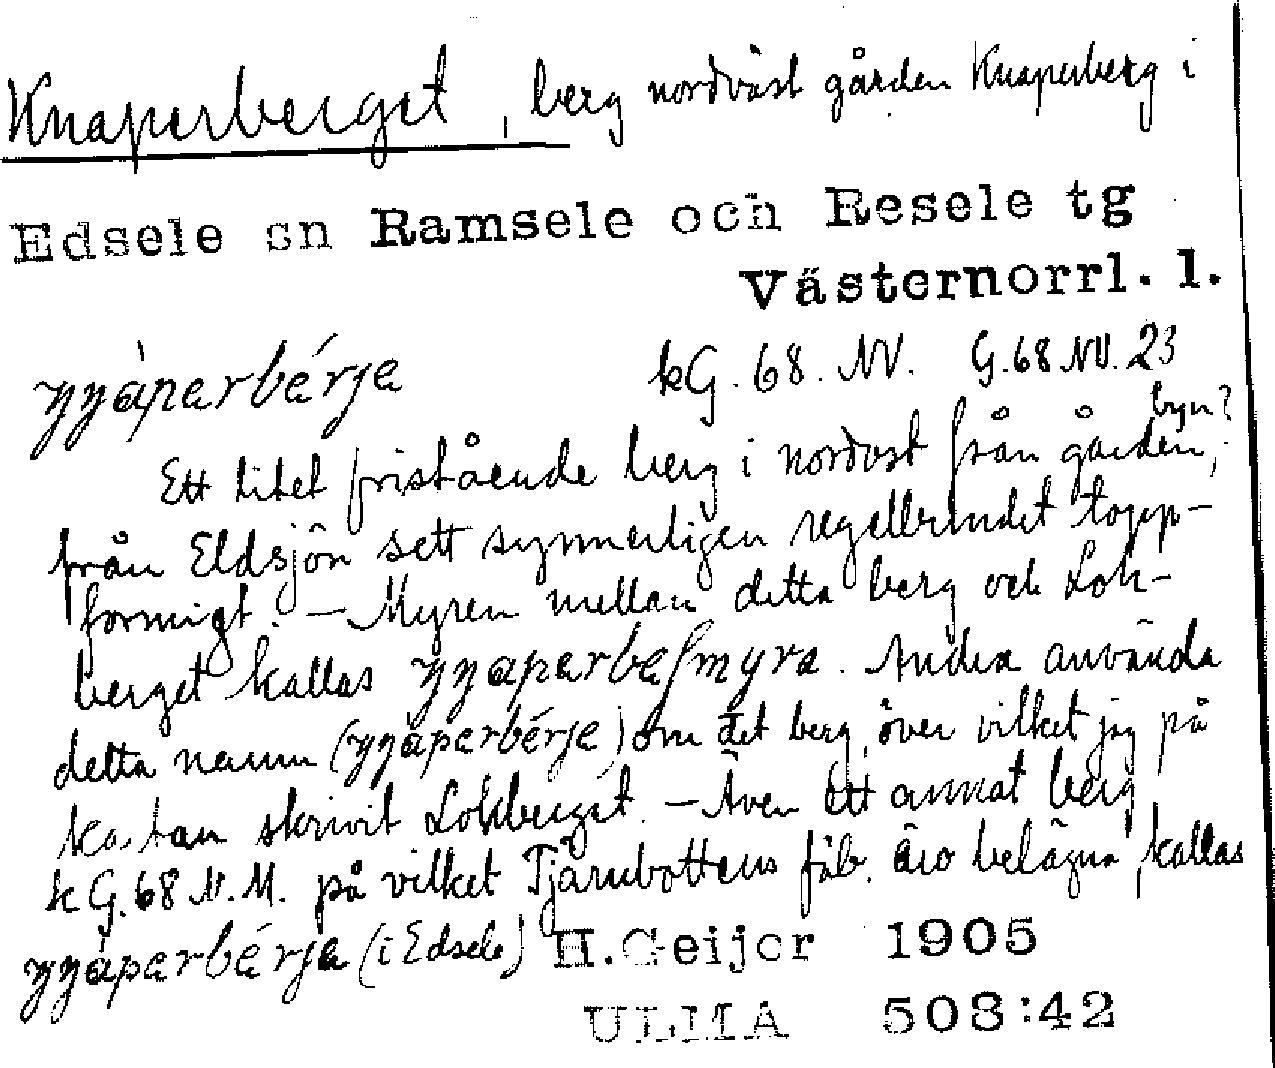 Knaperberget, berg nordväst gården Knaperberg i
Edsele sn Ramsele och Resele tg
Västernorrl. l.
kG. 68. NV. G. 68 NV. 23
byn?
Ett litet fristående berg i nordost från gården,
från Eldsjön sett synnerligen regelbundet topp-
formigt. – Myren mellan detta berg och Lok-
berget kallas ŋŋaparbeſmyra. Andra använda
detta namn (ŋŋàparbérja) om det berg, över vilket jag på
kartan skrivit Lokberget. – Även ett annat berg
k G. 68 N. M. på vilket Tjärnbottens fäb. äro belägna, kallas
ŋŋàparbérja (i Edsele) H. Geijer 1905
ULMA 508:42